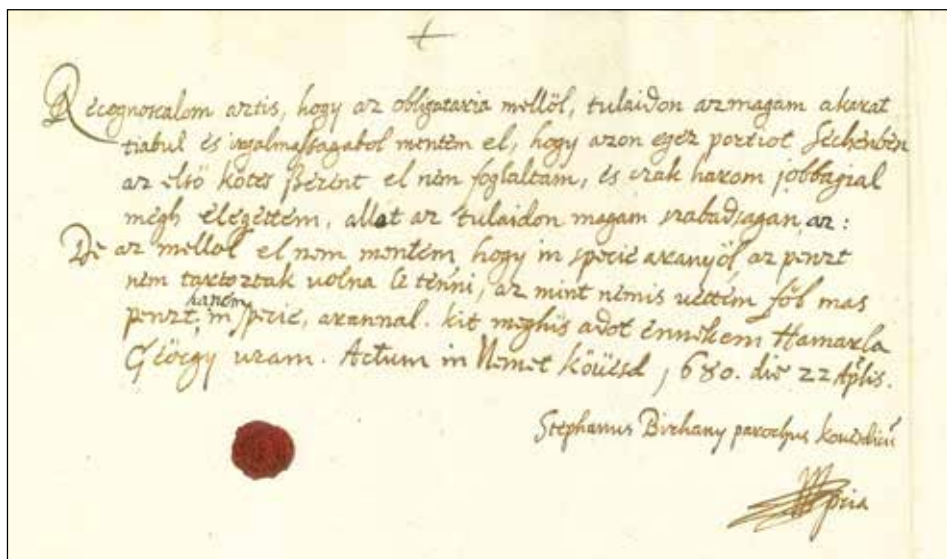 Recognoscalom aztis, hogy az obligatoria mellöl, tulaidon azmagam akarat
tiabul és irgalmassagabol mentem el, hogy azon egez portiot Sechenben
az elsö kötes szerent el nem foglaltam, és czak harom jobbagial
megh elegettem, allot az tulaidon magam szabadsagan az:
De az mellol el nem mentem, hogy in specie aranyöl, az penzt
nem tartoztak volna le tenni, az mint nemis vettem föl mas
penzt, hanem in specie, arannal. kit meghis adot ennekem Hamarla
György uram. Actum in Nemet Köüesd, 680. die 22 Aplis.
Stephanus Birhany parochus